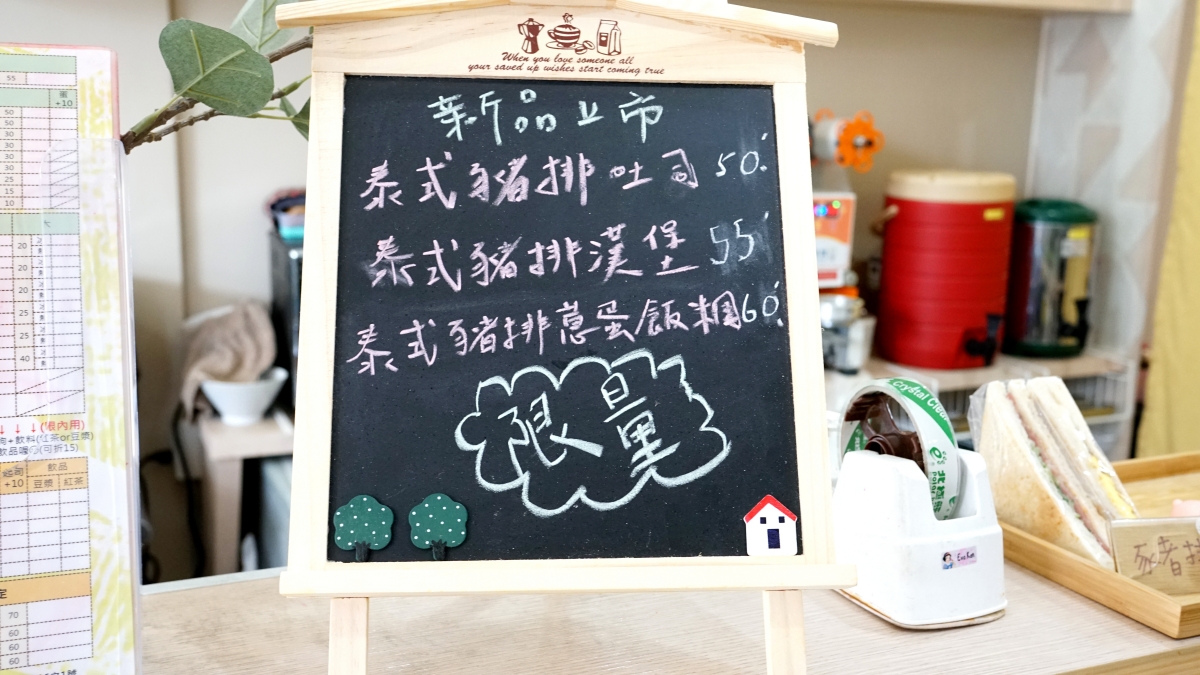 When you love someone all
your saved up wishes start coming true
新品上市
泰式豬排吐司 50.
泰式豬排漢堡 55
泰式豬排蔥蛋飯糰 60.
限量
55
蛋
+10
50
30
30
30
25
15
10
大
20
20
25
25
40
(限內用)
+飲料(紅茶or豆漿)
(可折15)
飲品
+10 豆漿 紅茶
定
70
60
60
60
Crystal Clear
豬排